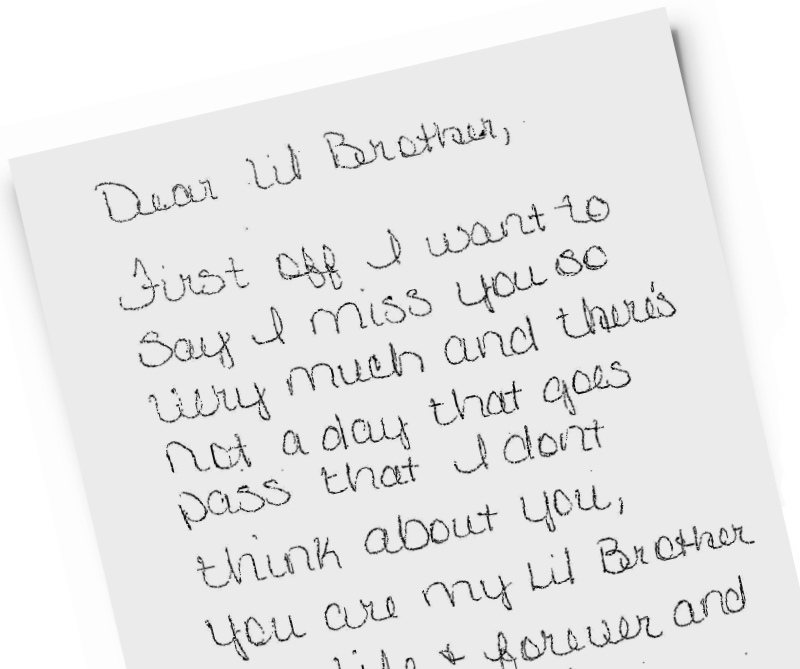 Dear Lil Brother,
First off I want to
say I miss you so
very much and there's
not a day that goes
pass that I dont
think about you,
You are my Lil Brother
life & forever and